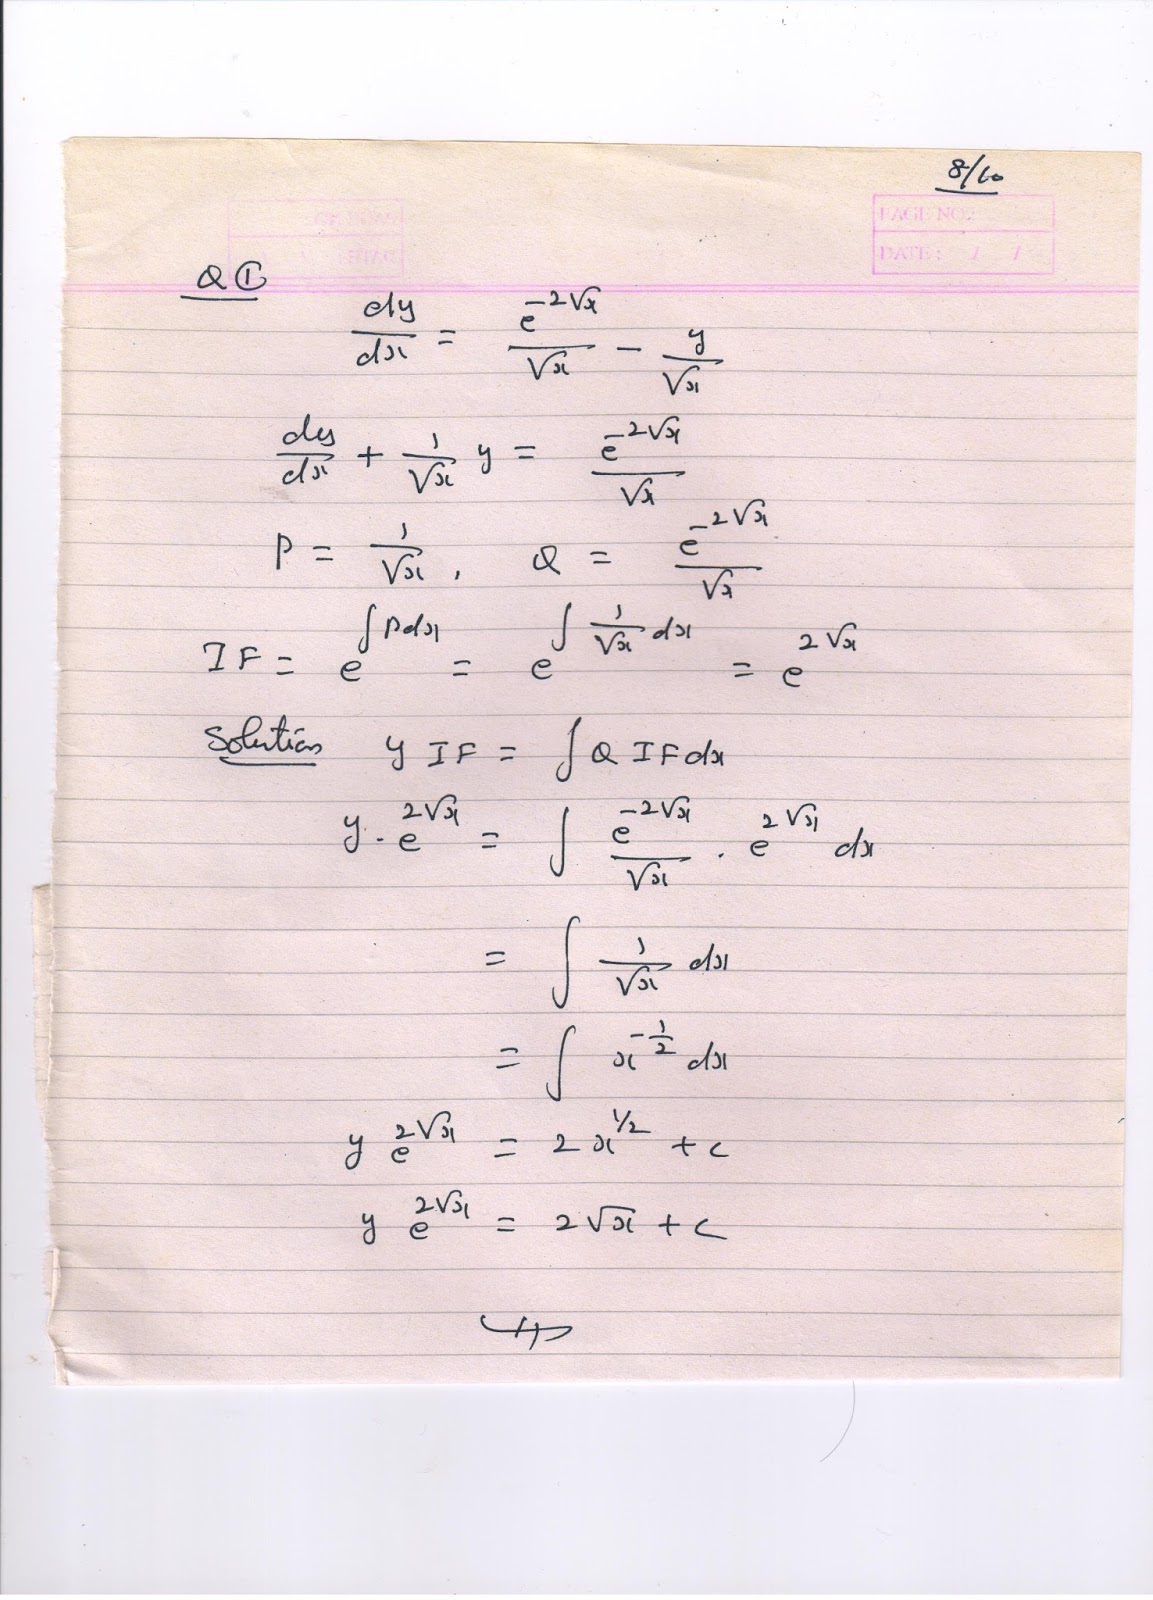 8/10
PAGE NO.:
DATE : / /
Q ①
dy/dx = e^{-2√x}/√x - y/√x
dy/dx + 1/√x y = e^{-2√x}/√x
P = 1/√x, Q = e^{-2√x}/√x
IF = e^{∫Pdx} = e^{∫ 1/√x dx} = e^{2√x}
Solution y IF = ∫ Q IF dx
y · e^{2√x} = ∫ e^{-2√x}/√x · e^{2√x} dx
= ∫ 1/√x dx
= ∫ x^{-1/2} dx
y e^{2√x} = 2 x^{1/2} + c
y e^{2√x} = 2√x + c